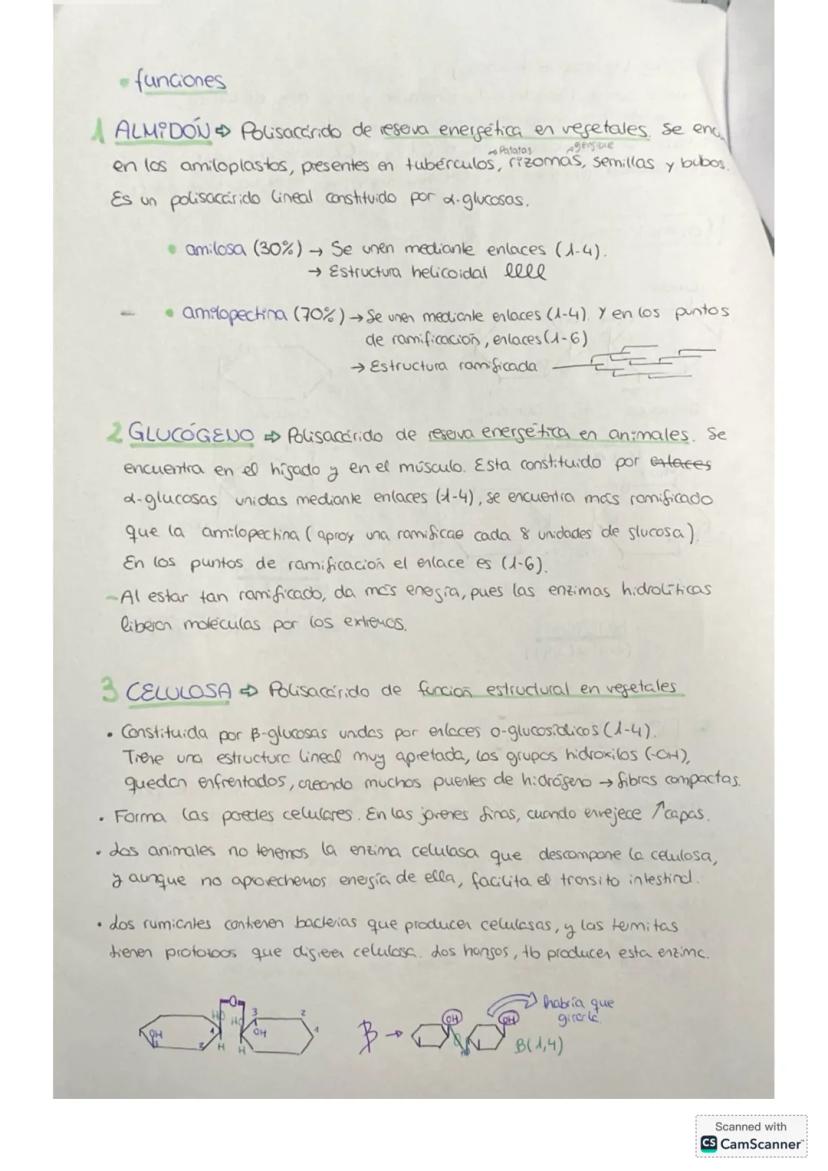 • funciones
1 ALMIDÓN ⇨ Polisacárido de reseva energética en vegetales. Se enc
→ Patatas → gengibre
en los amiloplastos, presentes en tubérculos, rizomas, semillas y bulbos.
Es un polisacárido lineal constituido por α-glucosas.
• amilosa (30%) → Se unen mediante enlaces (1-4).
→ Estructura helicoidal
- • amilopectina (70%) → Se unen mediante enlaces (1-4). Y en los puntos
de ramificación, enlaces (1-6)
→ Estructura ramificada
2 GLUCÓGENO ⇨ Polisacárido de reseva energética en animales. Se
encuentra en el hígado y en el músculo. Esta constituido por enlaces
α-glucosas unidas mediante enlaces (1-4), se encuentra más ramificado
que la amilopectina (aprox una ramificac cada 8 unidades de glucosa).
En los puntos de ramificación el enlace es (1-6).
- Al estar tan ramificado, da más energía, pues las enzimas hidrolíticas
liberan moléculas por los extremos.
3 CELULOSA ⇨ Polisacárido de función estructural en vegetales
• Constituida por β-glucosas unidas por enlaces o-glucosídicos (1-4).
Tiene una estructura lineal muy apretada, los grupos hidroxilos (-OH),
quedan enfrentados, creando muchos puentes de hidrógeno → fibras compactas.
• Forma las paredes celulares. En las jovenes finas, cuando envejece ↑capas.
• Los animales no tenemos la enzima celulasa que descompone la celulosa,
y aunque no aprovechemos energía de ella, facilita el transito intestinal.
• Los rumiantes contienen bacterias que producen celulasas, y las termitas
tienen protozoos que digieren celulosa. Los hongos, tb producen esta enzima.
O
HO HO 3 2
OH 4 OH 1
H H
β → OH OH
habría que
girarle
B(1,4)
Scanned with
CS CamScanner